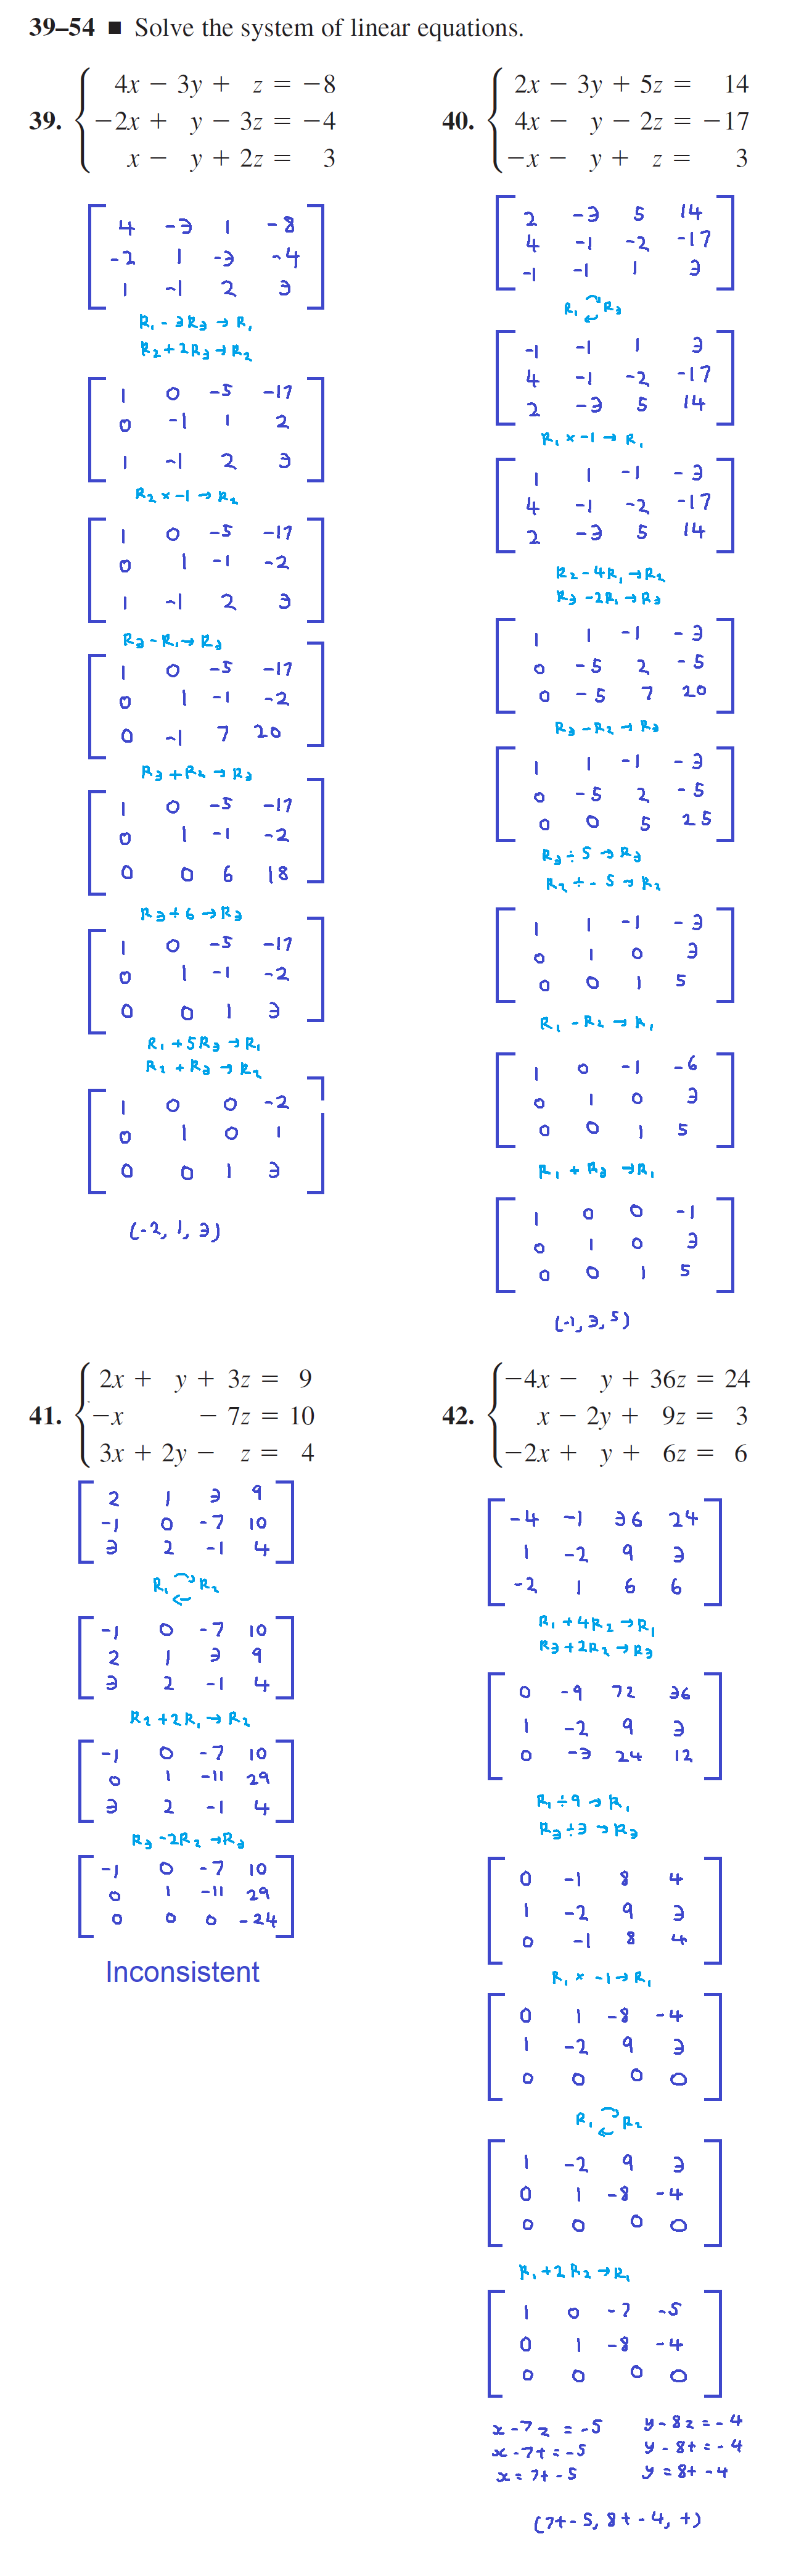 39–54 ■ Solve the system of linear equations.
39. { 4x − 3y + z = −8
−2x + y − 3z = −4
x − y + 2z = 3
4 -3 1 -8
-2 1 -3 -4
1 -1 2 3
R₁ - 3R₃ → R₁
R₂ + 2R₃ → R₂
1 0 -5 -17
0 -1 1 2
1 -1 2 3
R₂ × -1 → R₂
1 0 -5 -17
0 1 -1 -2
1 -1 2 3
R₃ - R₁ → R₃
1 0 -5 -17
0 1 -1 -2
0 -1 7 20
R₃ + R₂ → R₃
1 0 -5 -17
0 1 -1 -2
0 0 6 18
R₃ ÷ 6 → R₃
1 0 -5 -17
0 1 -1 -2
0 0 1 3
R₁ + 5R₃ → R₁
R₂ + R₃ → R₂
1 0 0 -2
0 1 0 1
0 0 1 3
(-2, 1, 3)
40. { 2x − 3y + 5z = 14
4x − y − 2z = −17
−x − y + z = 3
2 -3 5 14
4 -1 -2 -17
-1 -1 1 3
R₁ ⇄ R₃
-1 -1 1 3
4 -1 -2 -17
2 -3 5 14
R₁ × -1 → R₁
1 1 -1 -3
4 -1 -2 -17
2 -3 5 14
R₂ - 4R₁ → R₂
R₃ - 2R₁ → R₃
1 1 -1 -3
0 -5 2 -5
0 -5 7 20
R₃ - R₂ → R₃
1 1 -1 -3
0 -5 2 -5
0 0 5 25
R₃ ÷ 5 → R₃
R₂ ÷ -5 → R₂
1 1 -1 -3
0 1 0 3
0 0 1 5
R₁ - R₂ → R₁
1 0 -1 -6
0 1 0 3
0 0 1 5
R₁ + R₃ → R₁
1 0 0 -1
0 1 0 3
0 0 1 5
(-1, 3, 5)
41. { 2x + y + 3z = 9
−x − 7z = 10
3x + 2y − z = 4
2 1 3 9
-1 0 -7 10
3 2 -1 4
R₁ ⇄ R₂
-1 0 -7 10
2 1 3 9
3 2 -1 4
R₂ + 2R₁ → R₂
-1 0 -7 10
0 1 -11 29
3 2 -1 4
R₃ - 2R₂ → R₃
-1 0 -7 10
0 1 -11 29
0 0 0 -24
Inconsistent
42. { −4x − y + 36z = 24
x − 2y + 9z = 3
−2x + y + 6z = 6
-4 -1 36 24
1 -2 9 3
-2 1 6 6
R₁ + 4R₂ → R₁
R₃ + 2R₂ → R₃
0 -9 72 36
1 -2 9 3
0 -3 24 12
R₁ ÷ 9 → R₁
R₃ ÷ 3 → R₃
0 -1 8 4
1 -2 9 3
0 -1 8 4
R₁ × -1 → R₁
0 1 -8 -4
1 -2 9 3
0 0 0 0
R₁ ⇄ R₂
1 -2 9 3
0 1 -8 -4
0 0 0 0
R₁ + 2R₂ → R₁
1 0 -7 -5
0 1 -8 -4
0 0 0 0
x - 7z = -5 y - 8z = -4
x - 7t = -5 y - 8t = -4
x = 7t - 5 y = 8t - 4
(7t - 5, 8t - 4, t)